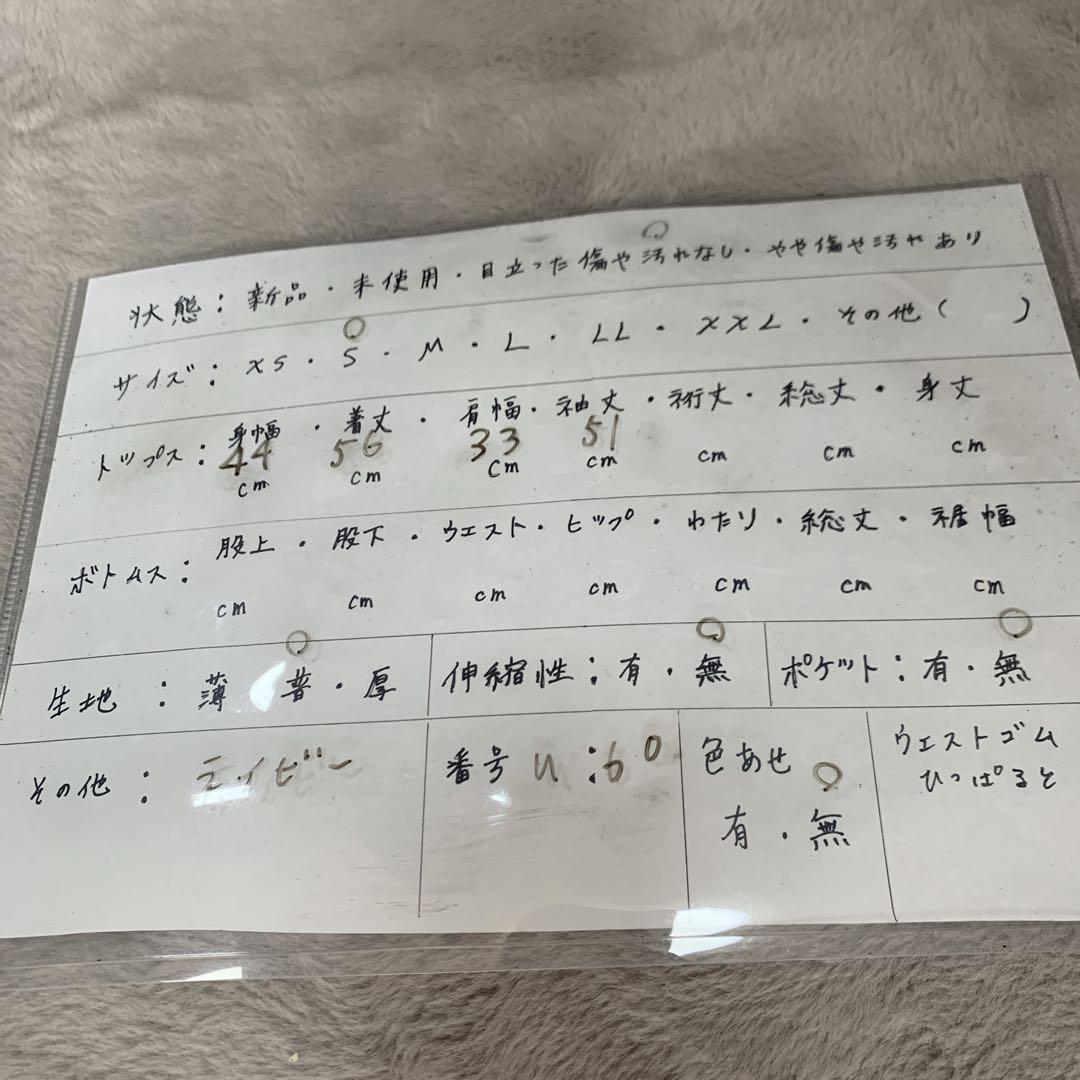 状態：新品・未使用・目立った傷や汚れなし・やや傷や汚れあり
サイズ：XS・S・M・L・LL・XXL・その他（　　）
トップス：身幅・着丈・肩幅・袖丈・裄丈・総丈・身丈
44 56 33 51
cm cm cm cm cm cm cm
ボトムス：股上・股下・ウエスト・ヒップ・わたり・総丈・裾幅
cm cm cm cm cm cm cm
生地：薄 普・厚
伸縮性：有・無
ポケット：有・無
その他：ネイビー
番号 U:60
色あせ
有・無
ウエストゴム
ひっぱると